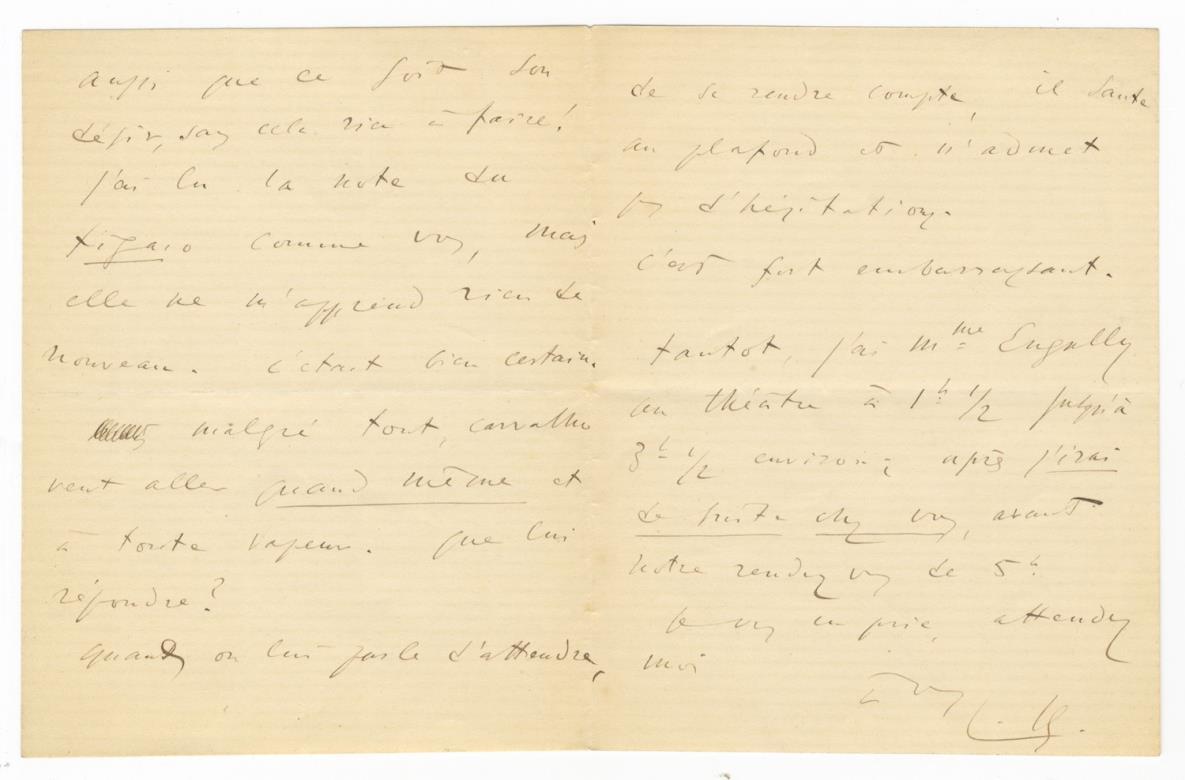 aussi que ce soit son
désir, sans cela rien à faire!
j'ai lu la note du
Figaro comme vous, mais
elle ne m'apprend rien de
nouveau. c'était bien certain.
malgré tout, Carvalho
veut aller quand même et
à toute vapeur. que lui
répondre?
quand on lui parle d'attendre,
de se rendre compte, il saute
au plafond et n'admet
pas d'hésitations.
c'est fort embarrassant.
tantot, j'ai Mme Engally
au théâtre à 1h 1/2 jusqu'à
3h 1/2 environ; après j'irai
de suite chez vous, avant
notre rendez vous de 5h.
Je vous en prie, attendez
moi
à vous